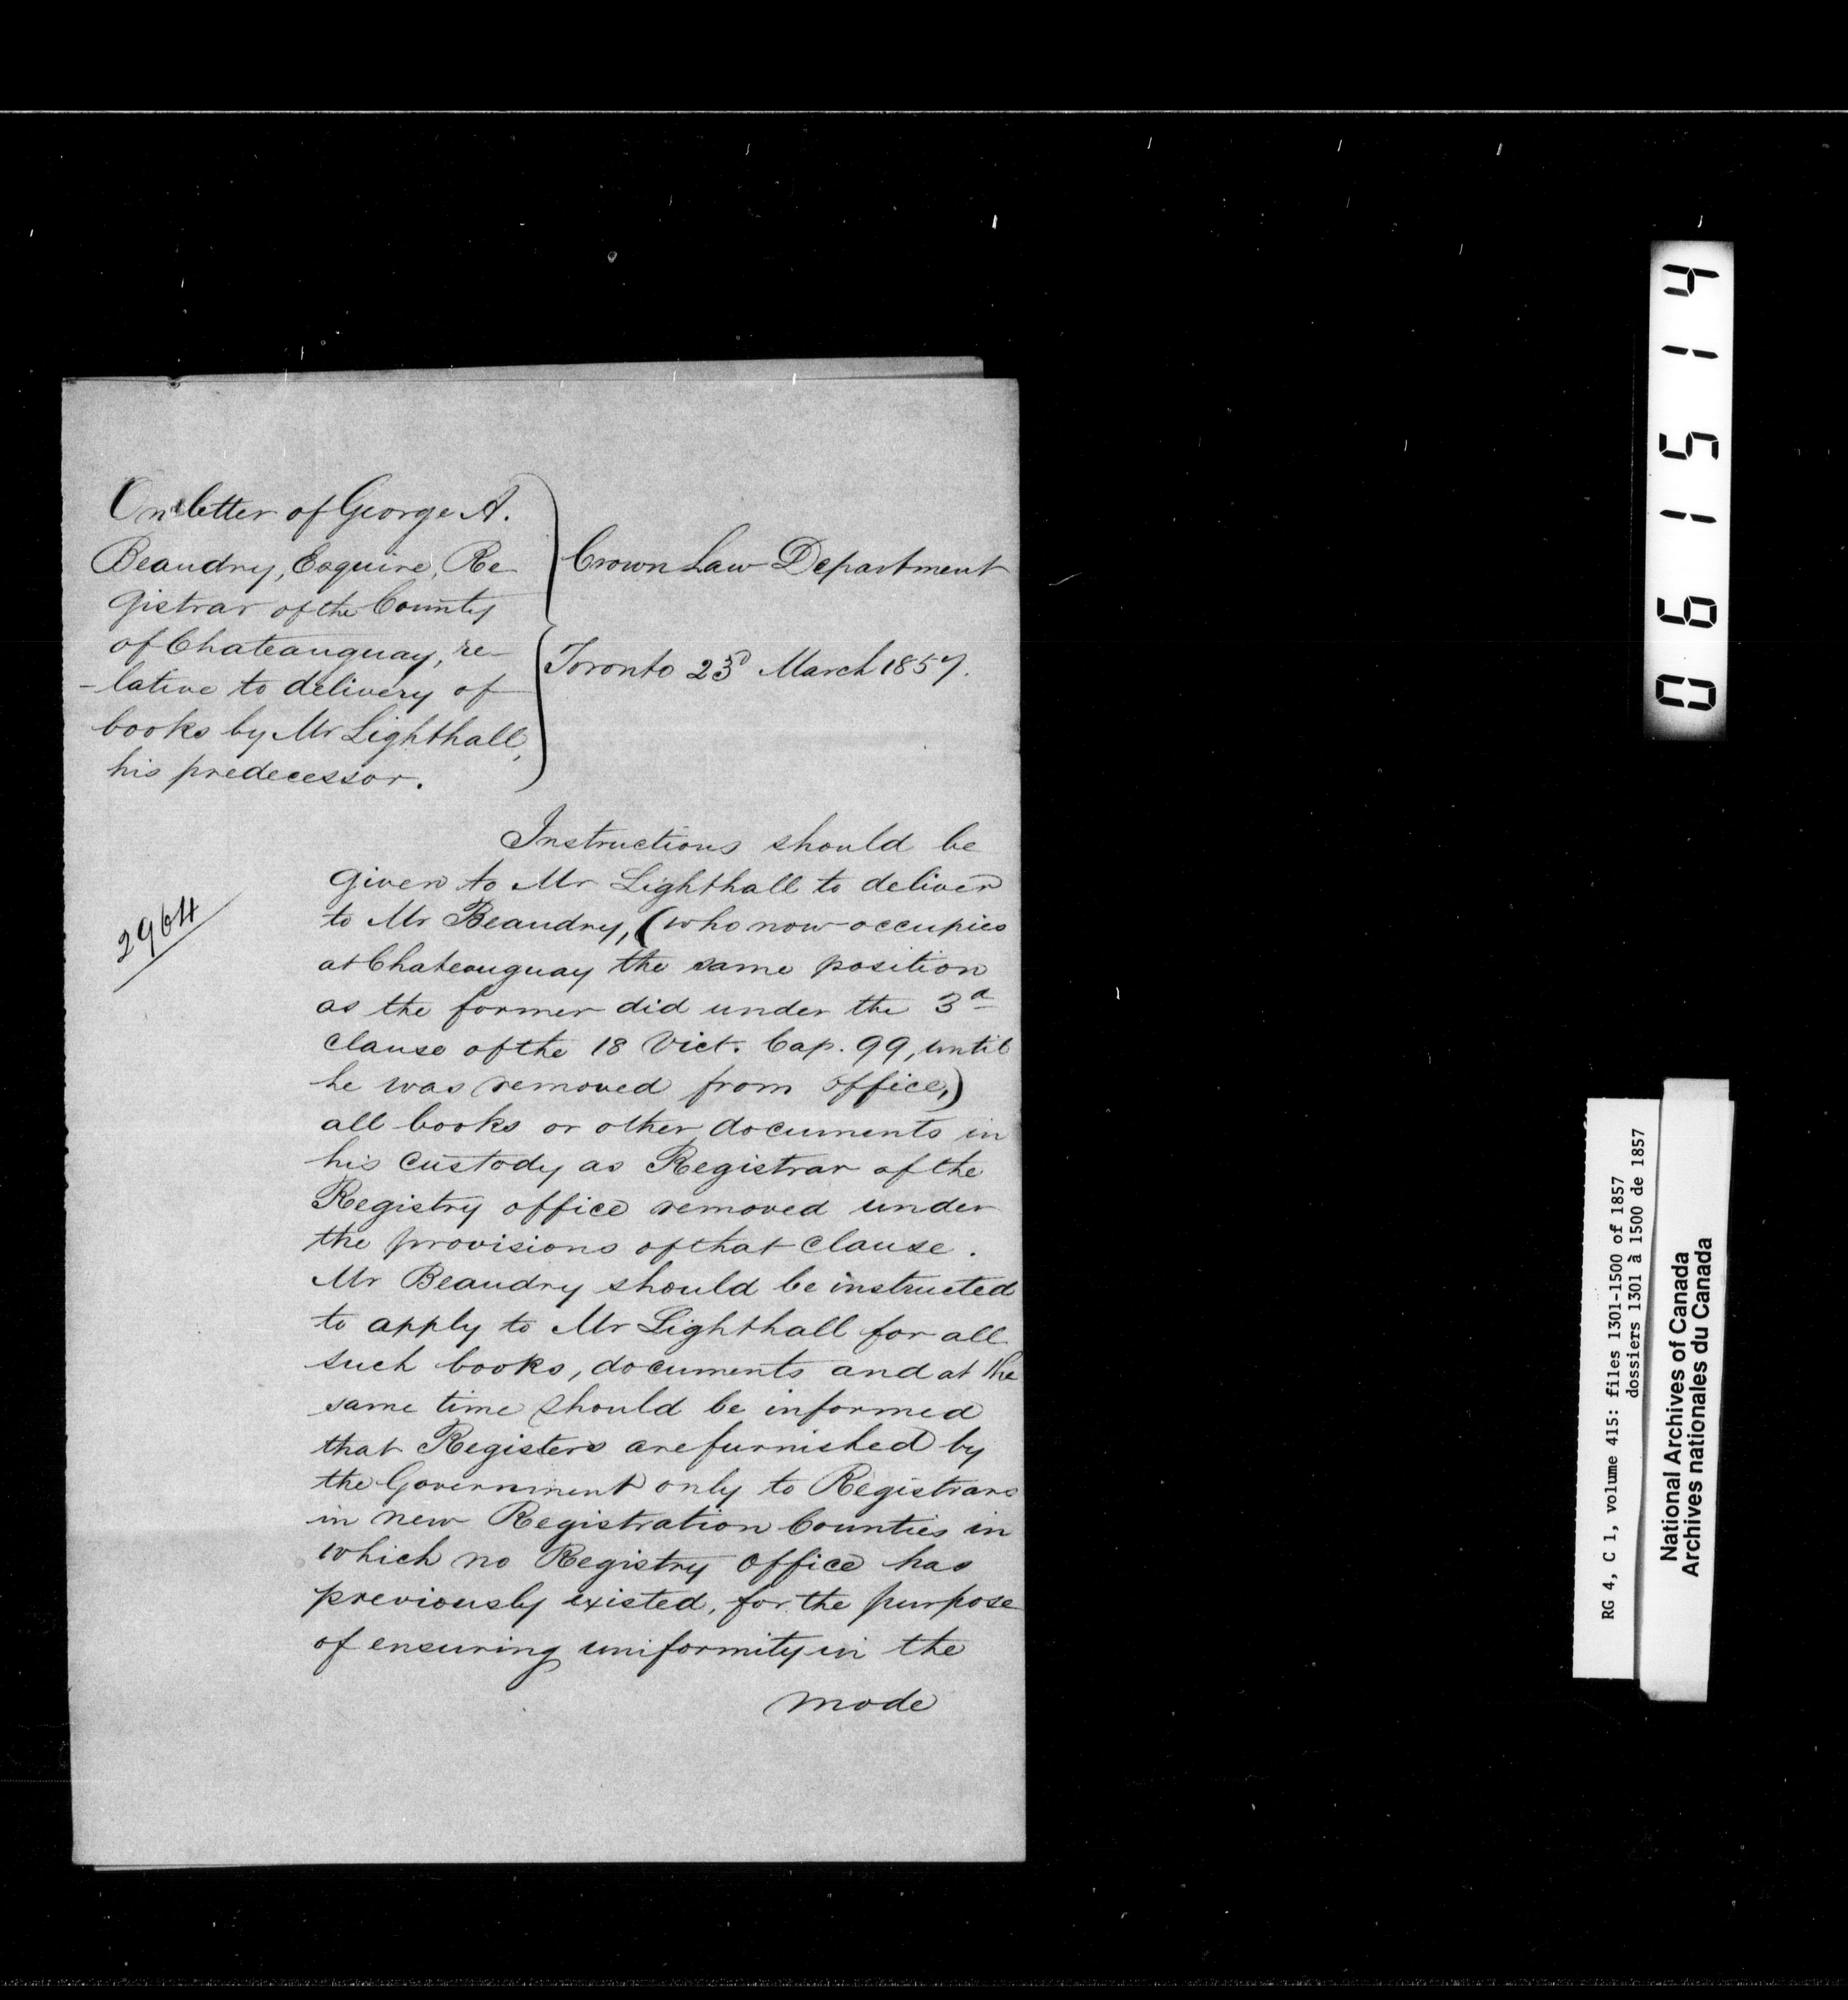 On letter of George A.
Beaudry, Esquire, Re-
gistrar of the County
of Chateauguay, re-
-lative to delivery of
books by Mr Lighthall,
his predecessor.
Crown Law Department
Toronto 23d March 1857.
2964
Instructions should be
given to Mr Lighthall to deliver
to Mr Beaudry, (who now occupies
at Chateauguay the same position
as the former did under the 3d
clause of the 18 Vict. Cap. 99, until
he was removed from office,)
all books or other documents in
his custody as Registrar of the
Registry office removed under
the provisions of that clause.
Mr Beaudry should be instructed
to apply to Mr Lighthall for all
such books, documents and at the
same time should be informed
that Registers are furnished by
the Government only to Registrars
in new Registration Counties in
which no Registry office has
previously existed, for the purpose
of ensuring uniformity in the
mode
061514
RG 4, C 1, volume 415: files 1301-1500 of 1857
dossiers 1301 à 1500 de 1857
National Archives of Canada
Archives nationales du Canada